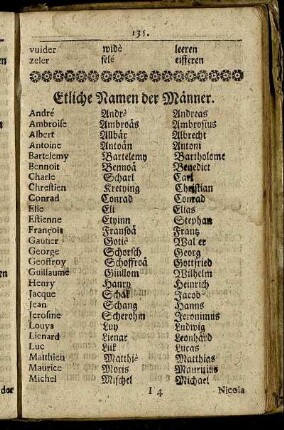 135.
vuider widè leeren
zeler selé eifferen
Etliche Namen der Männer.
André Andrè Andreas
Ambroise Ambroâs Ambrosius
Albert Allbär Albrecht
Antoine Antoân Antoni
Bartelemy Bartelemy Bartholome
Bennoit Bennoâ Benedict
Charle Scharl Carl
Chrestien Kretying Christian
Conrad Conrad Conrad
Elie Eli Elias
Estienne Etyinn Stephan
François Fransoâ Frantz
Gautier Gotie Walter
George Schorsch Georg
Geoffroy Schoffroâ Gottfried
Guillaume Giullom Wilhelm
Henry Hanry Heinrich
Jacque Schäk Jacob
Jean Schang Hanns
Jerosme Scherohm Jeronimus
Louys Luy Ludwig
Lienard Lienar Leonhard
Luc Lük Lucas
Matthieu Matthiè Matthias
Maurice Moris Mauritius
Michel Mischel Michael
I 4 Nicola